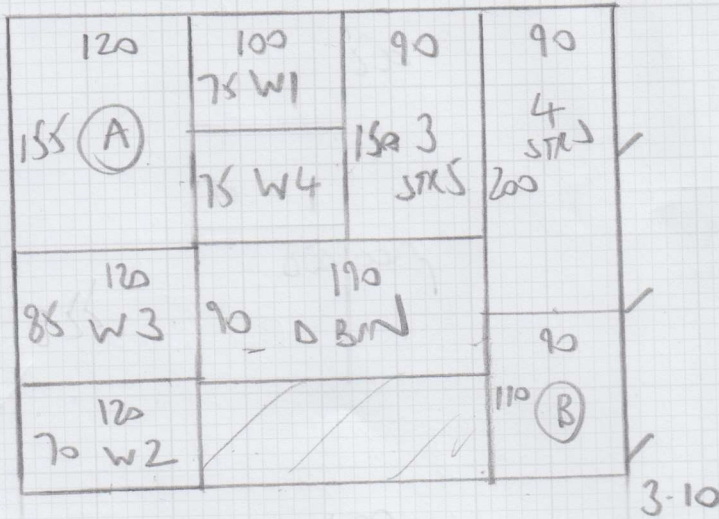 120
155 A
100
75 W1
75 W4
90
150 3
STRS
90
4
STRS
200
120
85 W3
190
90 D BIN
120
70 W2
90
110 B
3-10